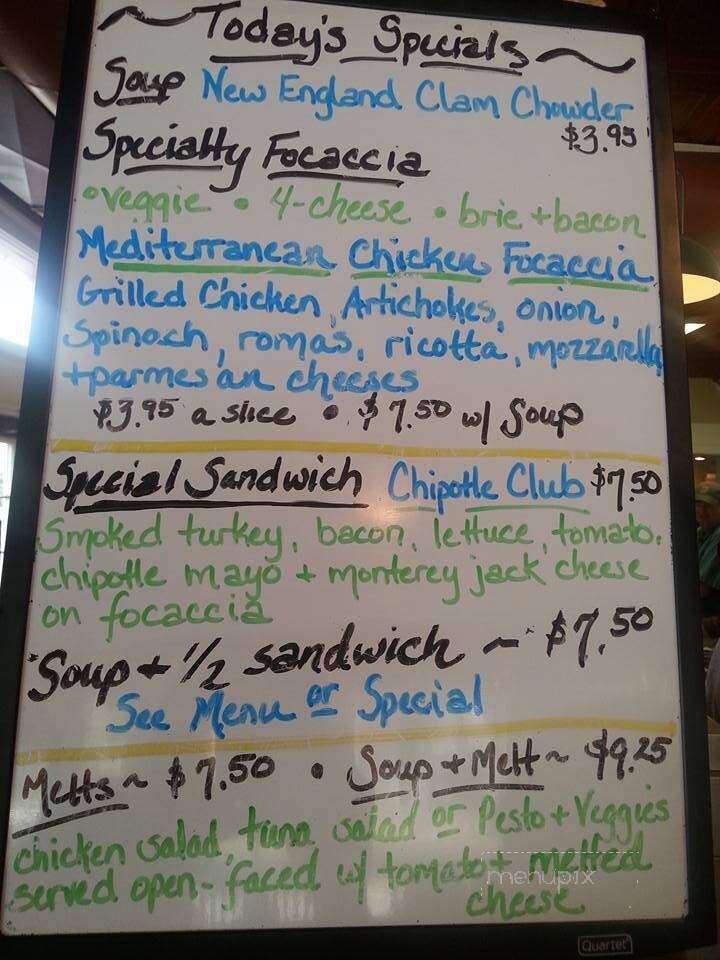 Today's Specials
Soup New England Clam Chowder
$3.95
Specialty Focaccia
• veggie • 4-cheese • brie + bacon
Mediterranean Chicken Focaccia
Grilled Chicken, Artichokes, onion,
Spinach, romas, ricotta, mozzarella
+ parmesan cheeses
$3.95 a slice • $7.50 w/ Soup
Special Sandwich Chipotle Club $7.50
Smoked turkey, bacon, lettuce, tomato,
chipotle mayo + monterey jack cheese
on focaccia
Soup + 1/2 sandwich ~ $7.50
See Menu or Special
Melts ~ $7.50 • Soup + Melt ~ $9.25
chicken salad, tuna salad or Pesto + Veggies
served open-faced w/ tomato + melted
cheese
menupix
Quartet